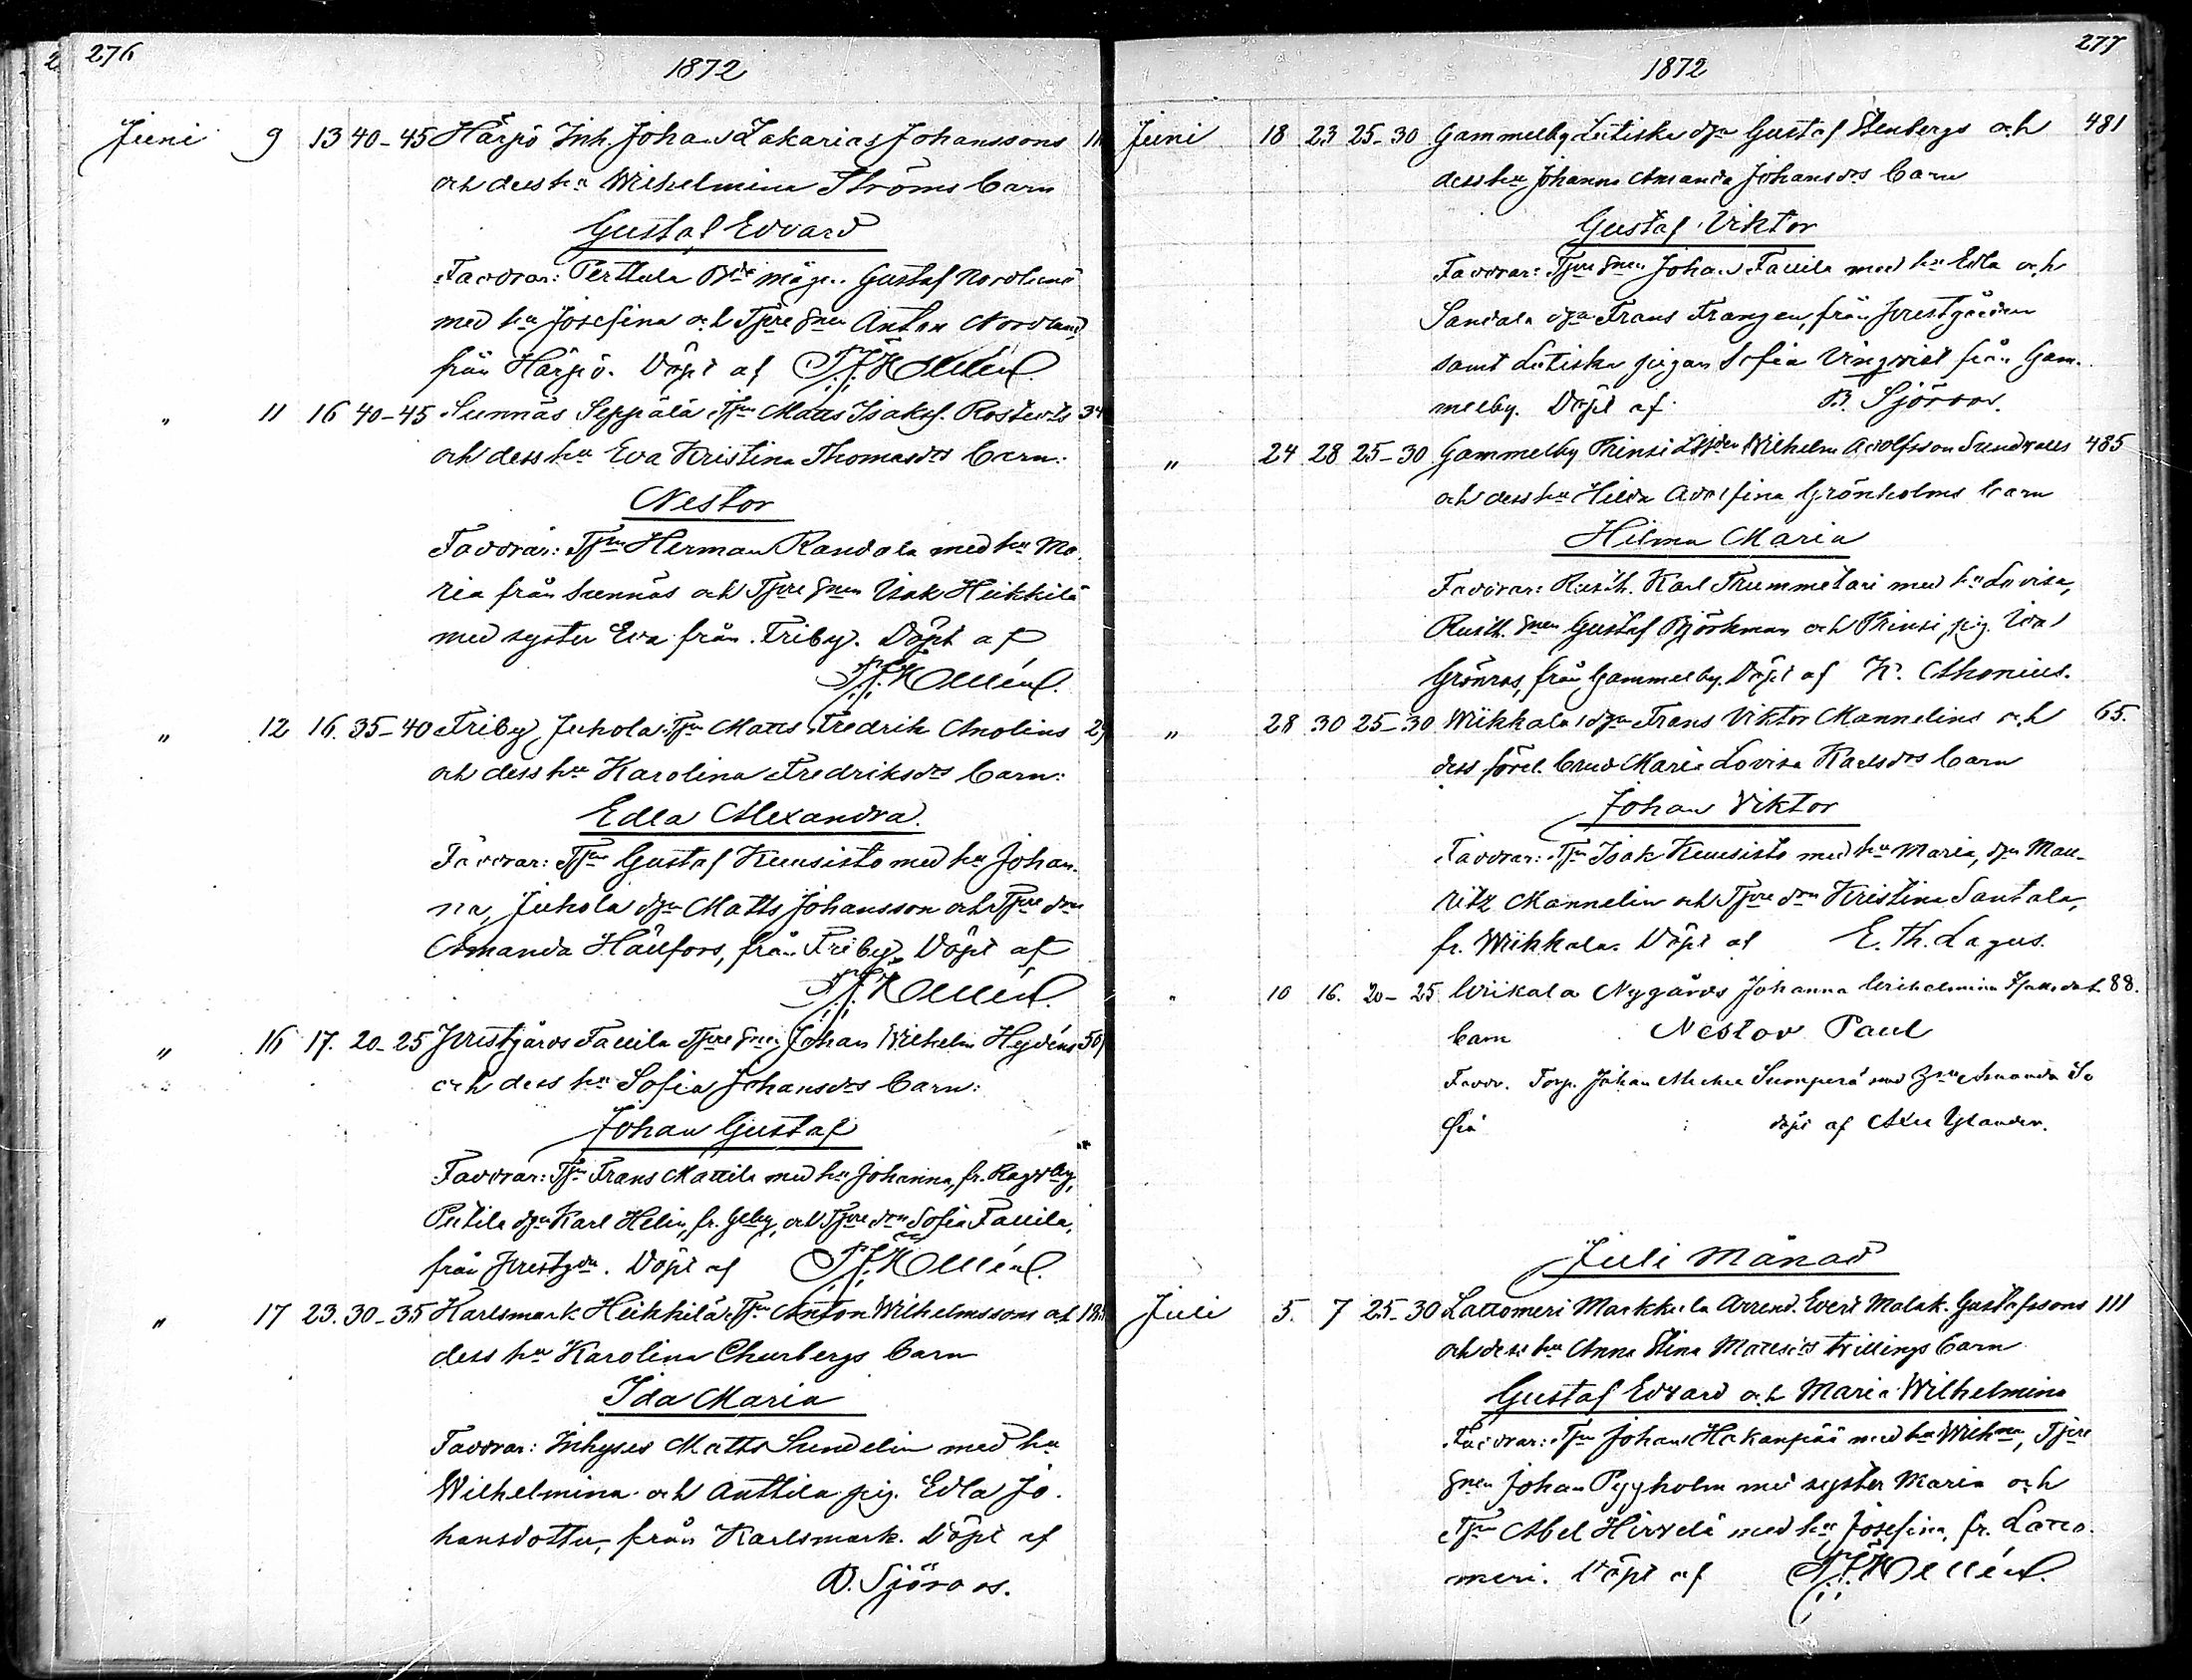 276
1872
Juni 9 13 40-45 Härpö Inh. Johan Zakarias Johanssons 11
och dess hu Wilhelmina Ströms barn
Gustaf Edvard
Faddrar: Perttula Bde mågen Gustaf Nordlund
med hu Josefina och Tjre gnen Anton Nordlund,
från Härpö. Döpt af
" 11 16 40-45 Sunnäs Seppälä Tpn Matts Isaks. 34
och dess hu Eva Kristina Thomasdrs barn:
Nestor
Faddrar: Tpn Herman Randala med hu Ma-
ria från Sunnäs och Tjre gnen Isak Heikkilä
med syster Eva från Friby. Döpt af
" 12 16. 35-40 Friby Juhola Tpn Matts Fredrik Anolins 29
och dess hu Karolina Fredriksdrs barn:
Edla Alexandra.
Faddrar: Tpn Gustaf Kuusisto med hu Johan-
na, Juhola dgn Matts Johansson och Tjre drn
Amanda Hällfors, från Friby. Döpt af
" 16 17. 20-25 Prestgårds Tauila Tjre gnen Johan Wilhelm Hydéns 50
och dess hu Sofia Johansdrs barn:
Johan Gustaf
Faddrar: Tpn Frans Mattila med hu Johanna, fr. Ragvby,
dgn Karl Helin, fr. och Tjre drn Sofia Tauila,
från Prestgdn. Döpt af
" 17 23. 30-35 Karlsmark Heikkilä Tpn Anton Wilhelmssons och 185
dess hu Karolina Churbergs barn
Ida Maria
Faddrar: Inhyses Matts Sundelin med hu
Wilhelmina och Anttila pig. Edla Jo-
hansdotter, från Karlsmark. Döpt af
B. Sjöroos.
277
1872
Juni 18 23 25-30 Gammelby Lutiska dgn Gustaf Stenbergs och 481
dess hu Johanna Amanda Johansdrs barn
Gustaf Viktor
Faddrar: Tjre gnen Johan Tauila med hu Edla och
Sandala dgn Frans Frangen, från Prestgården
samt Lutiska pigan Sofia Vingvist från Gam-
melby. Döpt af B. Sjöroos.
" 24 28 25-30 Gammelby Prinsi Wilhelm Adolfsson Sundvalls 485
och dess hu Hilda Adolfina Grönholms barn
Hilma Maria
Faddrar: Rusth. Karl Trummetari med hu Lovisa,
Rusth. gnen Gustaf Björkman och Prinsi pig. Ida
Grönros, från Gammelby. Döpt af K. Hhonius.
" 28 30 25-30 Wiikkala dgn Frans Viktor Mannelins och 65.
dess förel. brud Maria Lovisa Karlsdrs barn
Johan Viktor
Faddrar: Tpn Isak Kuusisto med hu Maria, dgn Mau-
ritz Mannelin och Tjre drn Kristina Santala,
fr. Wiikkala. Döpt af E. Th. Lagus.
" 10 16. 20-25 Wiikala Nygårds Johanna Wilhelmina 88.
barn Nestor Paul
Faddr. Torp. Johan med Amanda So
fia döpt af
Juli Månad
Juli 5. 7 25-30 Lattomeri Markkula Arrend. Evert Malak. Gustafssons 111
och dess hu Anna Stina Mattsdrs tvillings barn
Gustaf Edvard och Maria Wilhelmina
Faddrar: Tpn Johan Hakanpää med hu Wilhna, Tjre
gnen Johan Pyyholm med syster Maria och
Tpn Abel Hirvelä med hu Josefina, fr. Latto-
meri. Döpt af